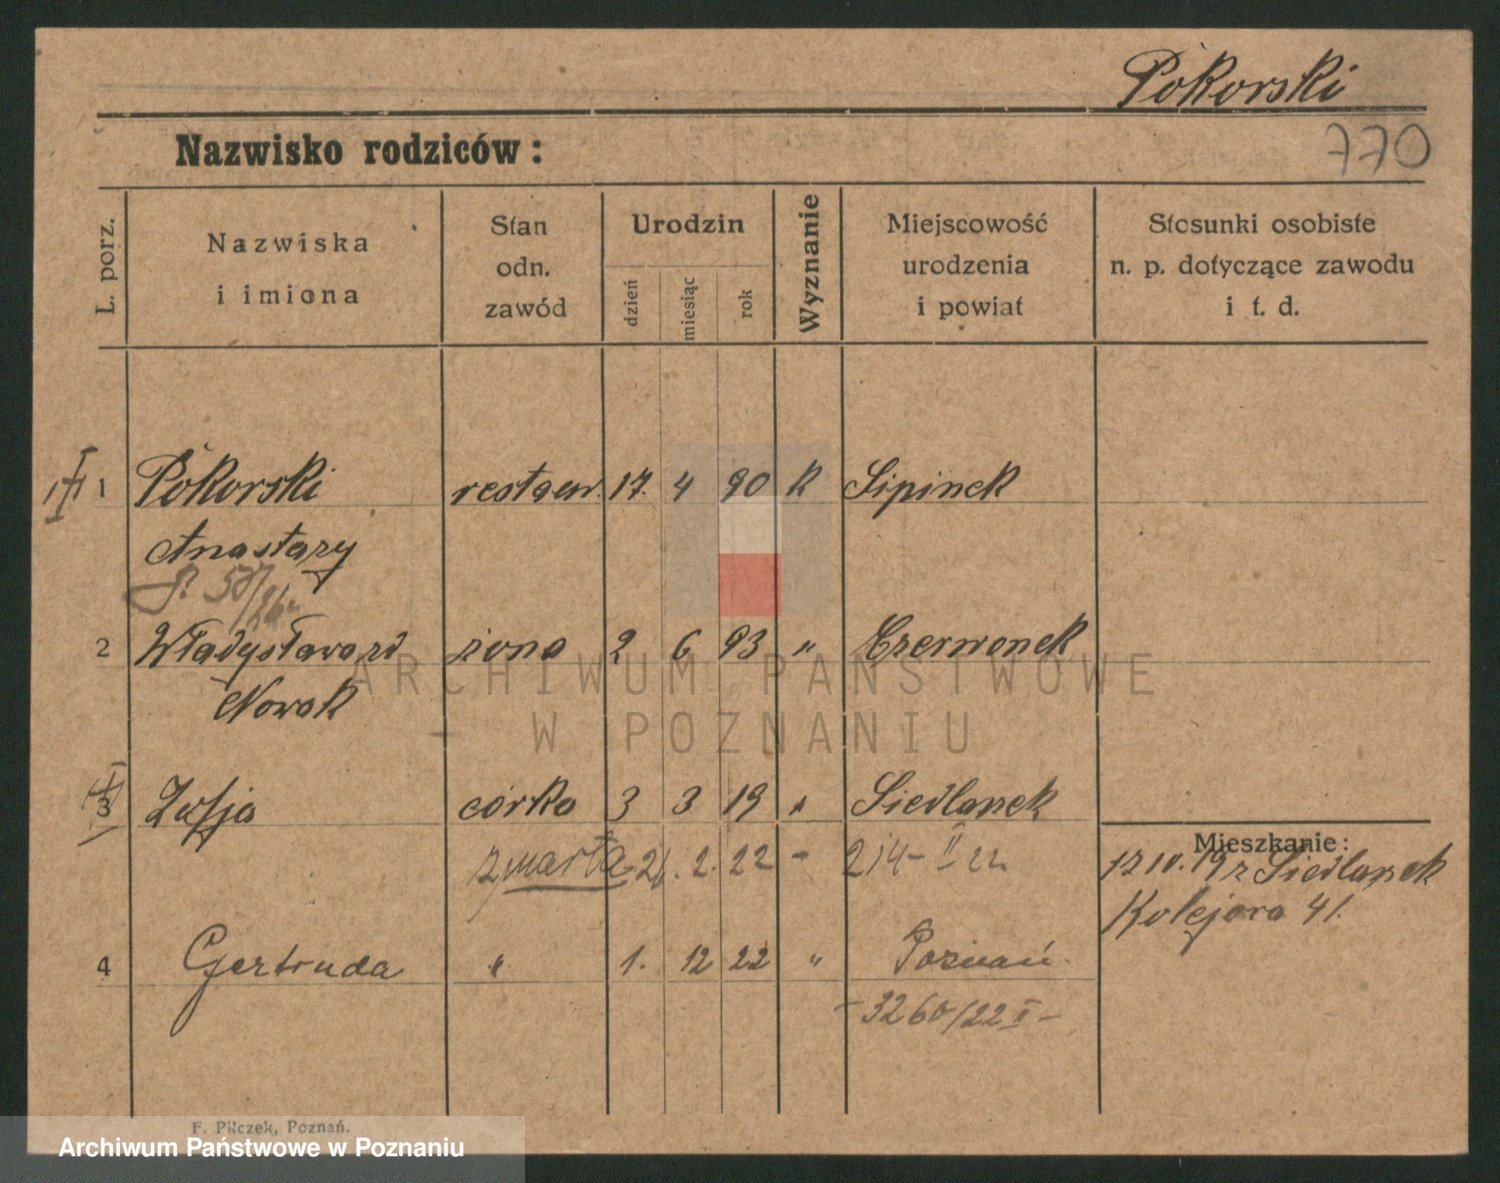 Pokorski
770
Nazwisko rodziców :
L. porz.
Nazwiska
i imiona
Stan
odn.
zawód
Urodzin
dzień
miesiąc
rok
Wyznanie
Miejscowość
urodzenia
i powiat
Stosunki osobiste
n. p. dotyczące zawodu
i t. d.
1 Pokorski restaur. 17. 4 90 k Lipinek
Anastazy
2 żona 2 6 93 " Czerwonek
Nowak
3 Zofja córka 3 3 19 " Siedlanek
zmarła 21. 2. 22 - 214 - II 22
Mieszkanie :
Siedlanek
41.
4 Gertruda " 1. 12 22 " Poznań.
- 3260/22 II -
ARCHIWUM PAŃSTWOWE
W POZNANIU
F. Pilczek, Poznań.
Archiwum Państwowe w Poznaniu